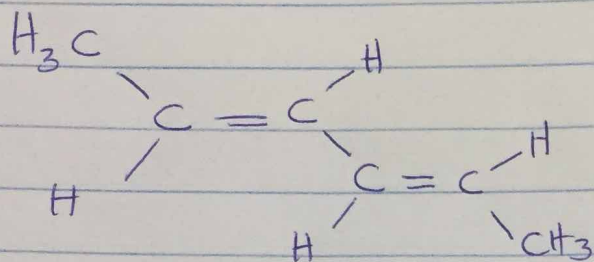 H₃C H
C = C
H C = C H
H CH₃